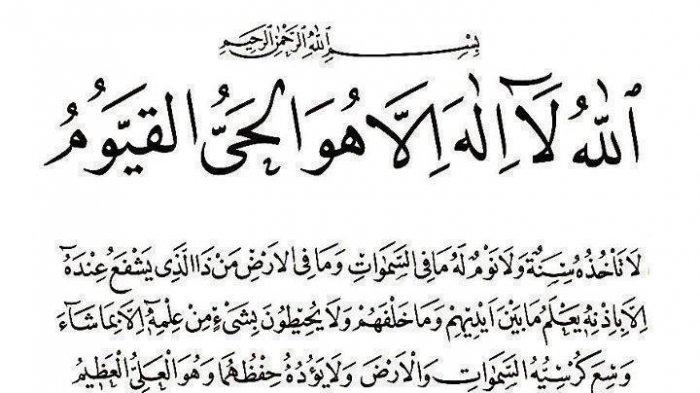 بِسْمِ اللهِ الرَّحْمٰنِ الرَّحِيمِ
اَللّٰهُ لَآ اِلٰهَ اِلَّا هُوَ الْحَيُّ الْقَيُّومُ
لَا تَأْخُذُهُ سِنَةٌ وَلَا نَوْمٌ لَهُ مَا فِى السَّمٰوَاتِ وَمَا فِى الْاَرْضِ مَنْ ذَا الَّذِى يَشْفَعُ عِنْدَهُٓ
اِلَّا بِاِذْنِهِ يَعْلَمُ مَا بَيْنَ اَيْدِيهِمْ وَمَا خَلْفَهُمْ وَلَا يُحِيطُونَ بِشَىْءٍ مِنْ عِلْمِهِٓ اِلَّا بِمَا شَٓاءَ
وَسِعَ كُرْسِيُّهُ السَّمٰوَاتِ وَالْاَرْضَ وَلَا يَؤُدُهُ حِفْظُهُمَا وَهُوَ الْعَلِىُّ الْعَظِيمُ